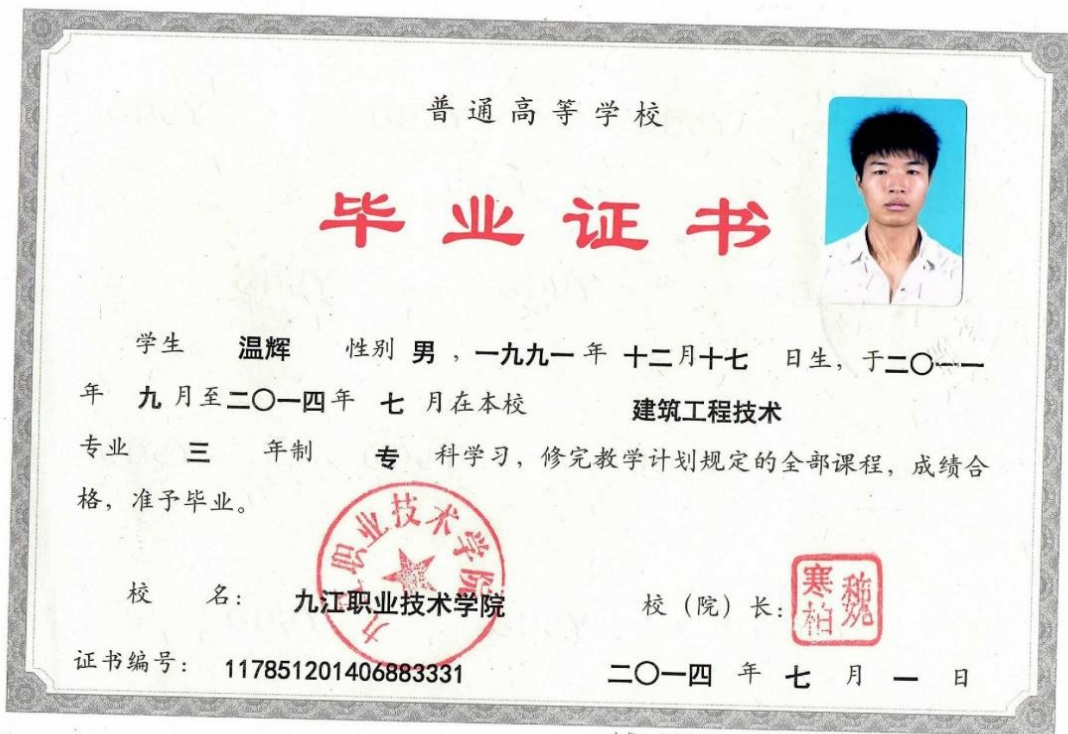 普通高等学校
毕业证书
学生 温辉 性别 男，一九九一年 十二月十七 日生，于二〇一一
年 九月至二〇一四年 七 月在本校 建筑工程技术
专业 三 年制 专 科学习，修完教学计划规定的全部课程，成绩合
格，准予毕业。
九江职业技术学院
校 名： 九江职业技术学院 校（院）长：
证书编号： 117851201406883331 二〇一四 年 七 月 一 日